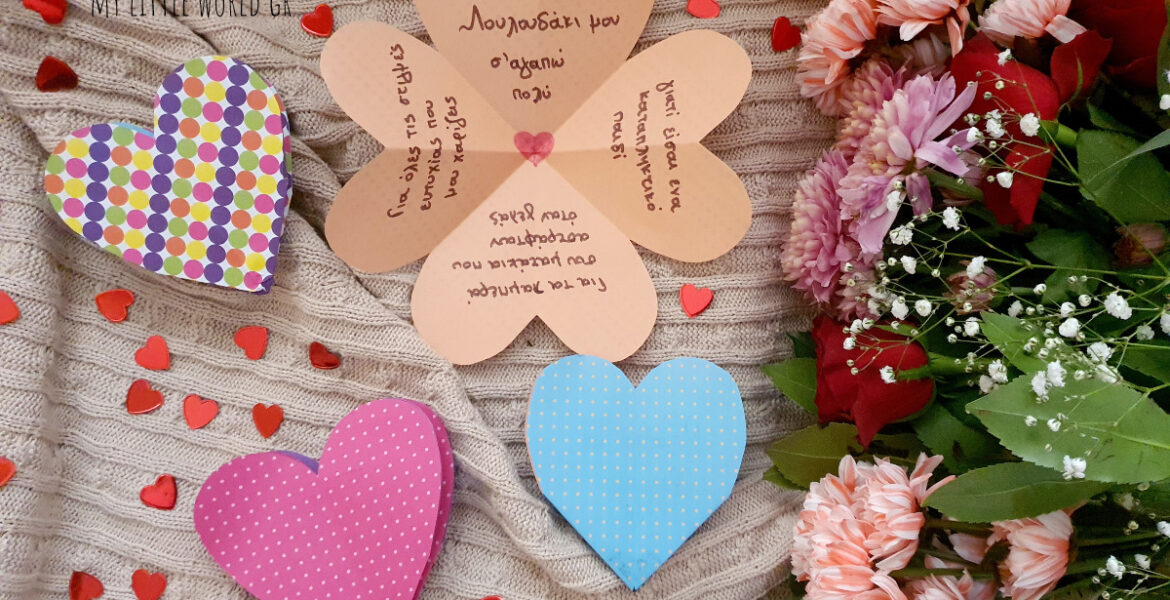 MY LITTLE WORLD GR
Λουλουδάκι μου
σ'αγαπώ
πολύ
γιατί είσαι ένα
καταπληκτικό
παιδί
Για τα λαμπερά
σου ματάκια που
αστράφτουν
όταν γελάς
Για όλες τις στιγμές
ευτυχίας που
μου χαρίζεις